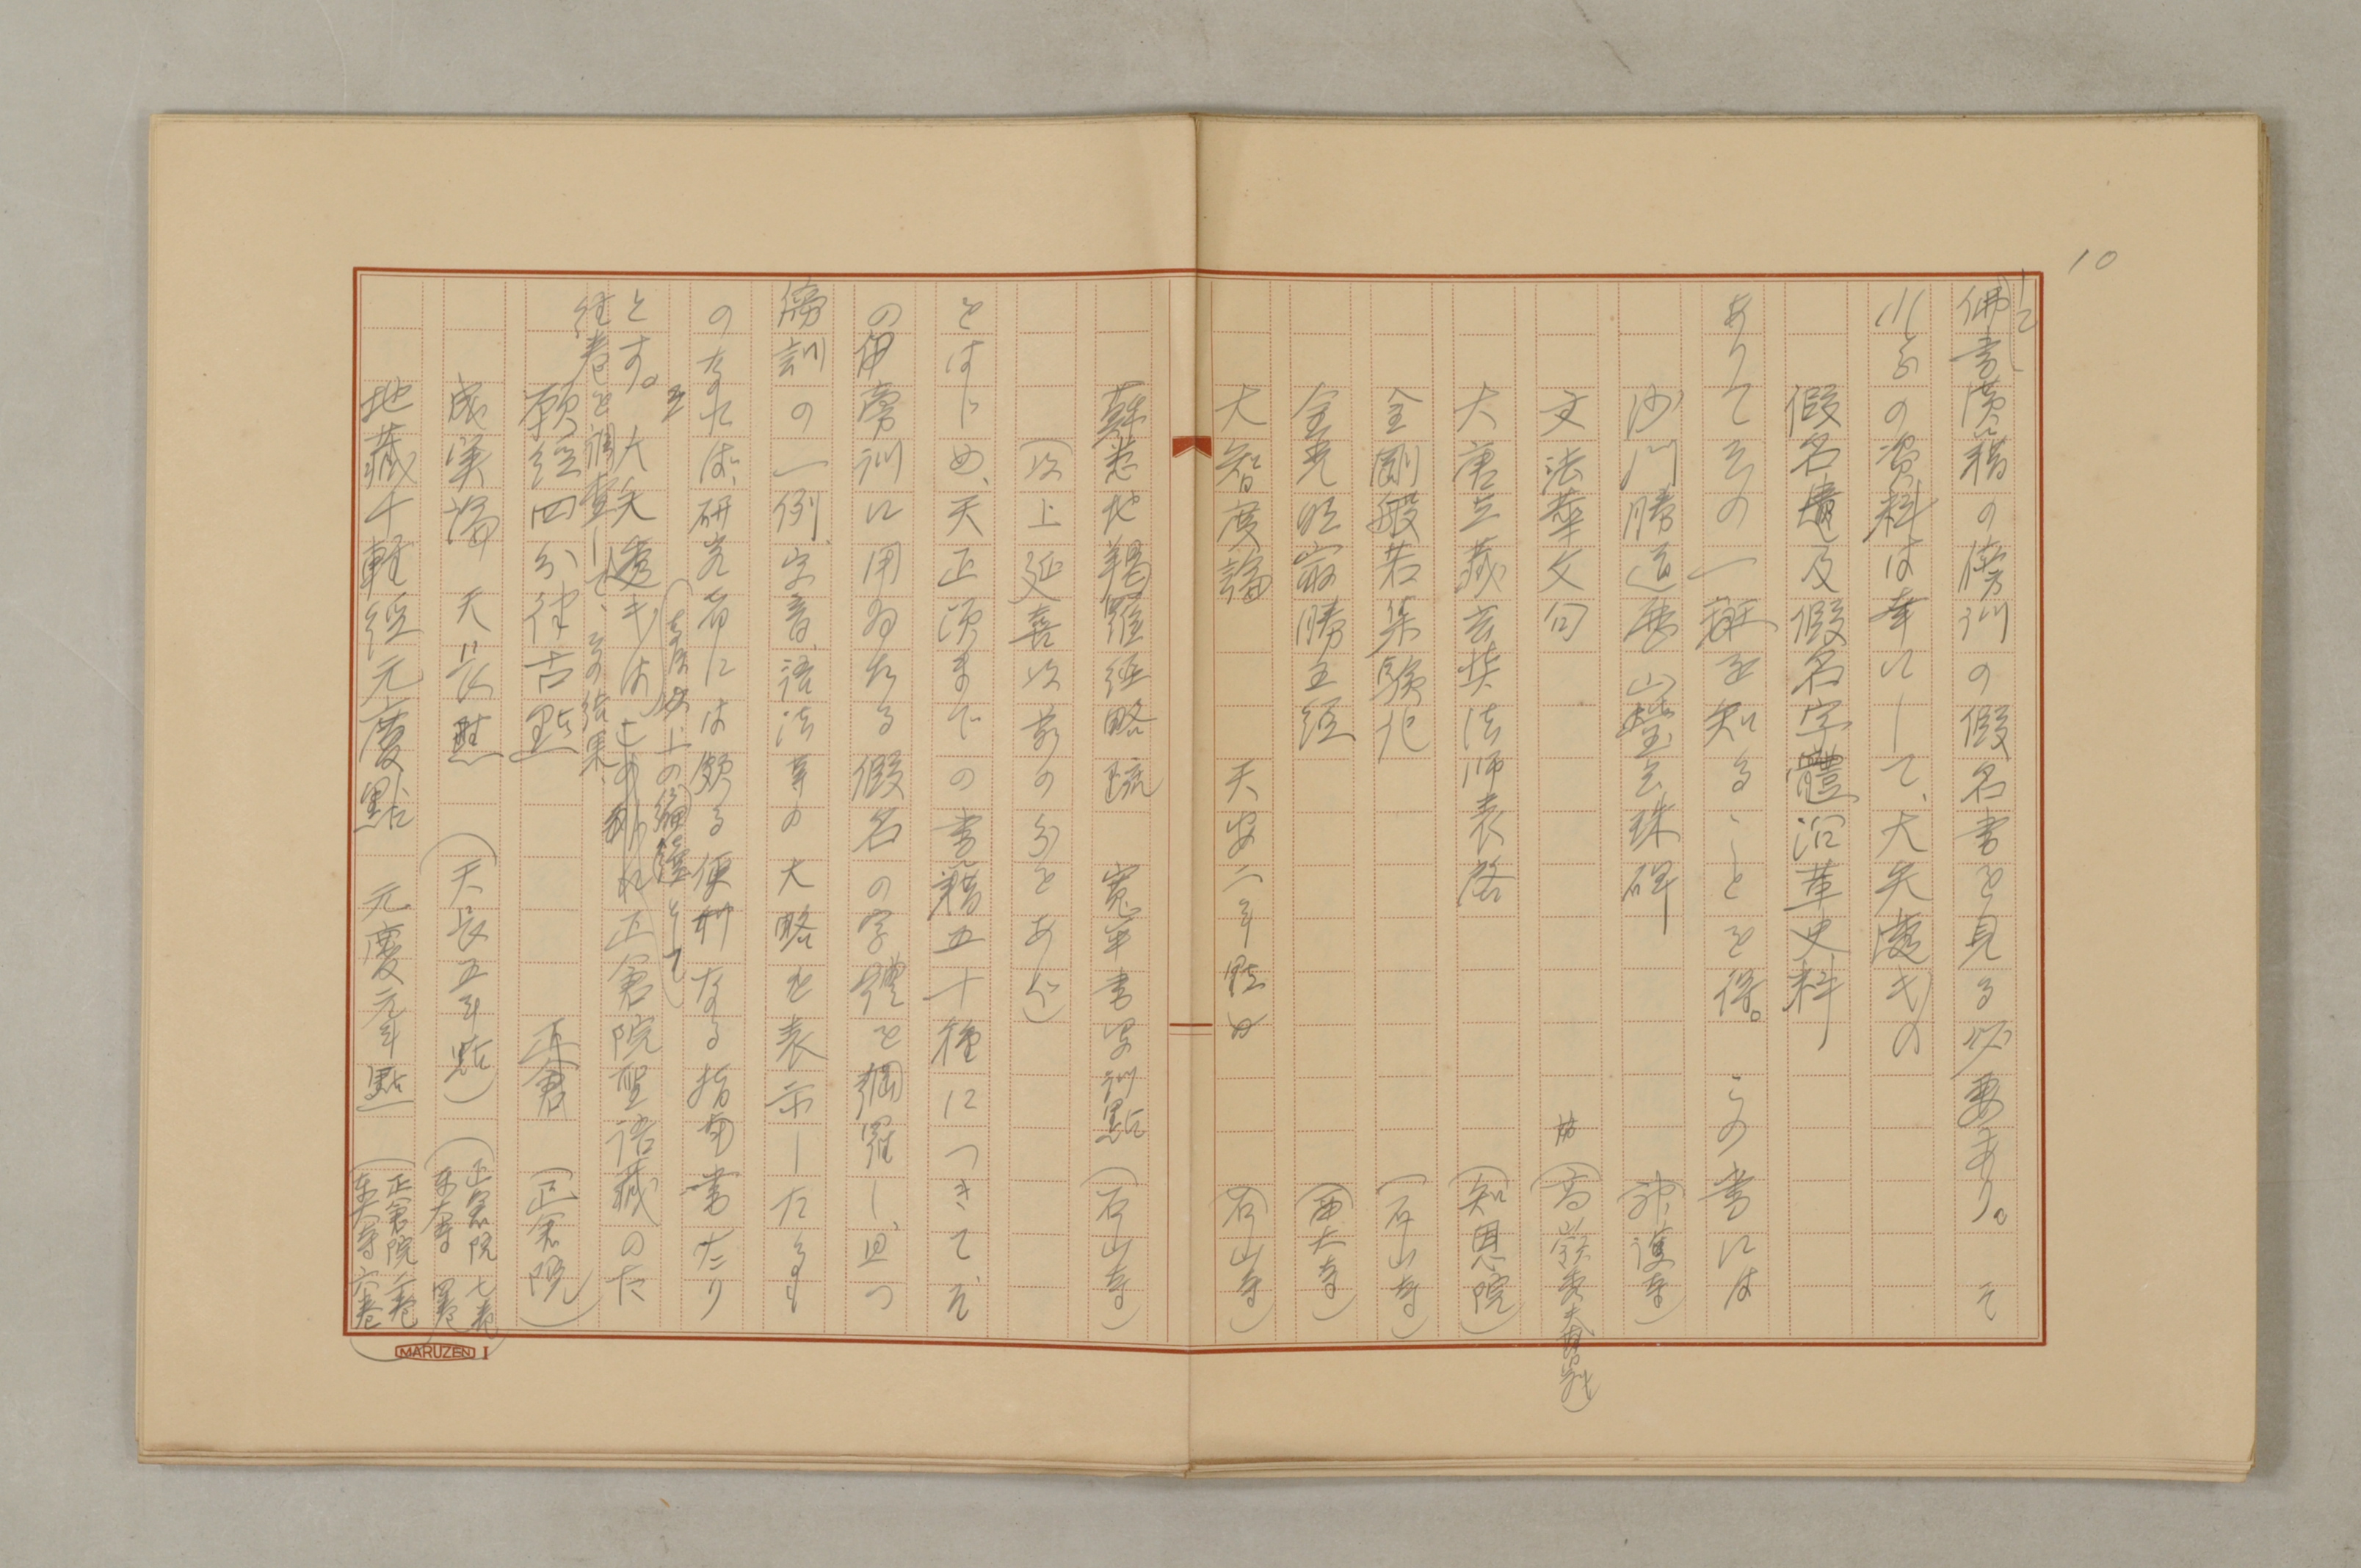 10
して
佛書漢籍の傍訓の假名書を見る必要あり。そ
れらの資料は幸にして、大矢透氏の
假名遣及假名字體沿革史料
ありてその一班を知ることを得。この書には
沙門勝道歴山瑩玄珠碑 (神護寺)
文法華文句
大唐三藏玄奘法師表啓 (知恩院)
金剛般若集験記 (石山寺)
金光明最勝王經 (西大寺)
大智度論 天安二年點 (石山寺)
蘇悉地羯羅經略疏 寛平書写訓點 (石山寺)
(以上延喜以前の分をあぐ)
をはじめ、天正頃までの書籍五十種につきて、そ
の傍訓に用ゐたる假名の字體を網羅し、且つ
傍訓の一例、字音、語法等の大略を表示したるも
のなれば、研究者には頗る便利なる指南書たり
とす。大矢透氏は正倉院聖語藏の
經卷を調査して、その結果、
願經四分律古點 (正倉院)
成実論 天長點 (天長五年點) (正倉院 七卷 東大寺
地藏十輪經元慶點 元慶元年點 (正倉院 東大寺 六卷
MARUZEN I